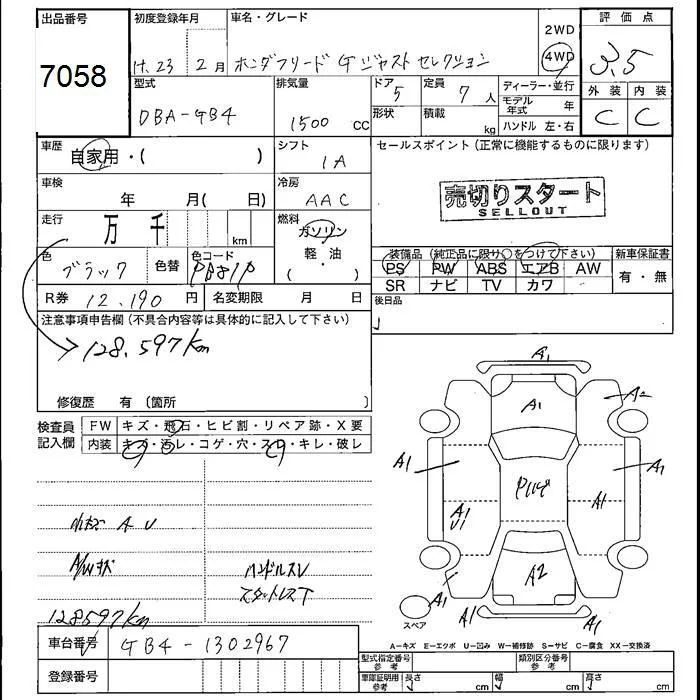 出品番号
7058
初度登録年月
H.23 2月
車名・グレード
ホンダフリード G ジャストセレクション
2WD
4WD
評価点
3.5
外装 内装
C C
型式
DBA-GB4
排気量
1500 cc
ドア
5
形状
定員
7 人
積載
kg
ディーラー・並行
モデル年式 年
ハンドル 左・右
車歴
自家用・( )
シフト
IA
セールスポイント (正常に機能するものに限ります)
売切りスタート
SELLOUT
車検
年 月( 日)
冷房
AAC
走行
万 千 km
燃料
ガソリン
軽・油
( )
色
ブラック
色替
色コード
R券 12.190 円
名変期限 月 日
装備品 (純正品に限り○をつけて下さい)
PS PW ABS エアB AW
SR ナビ TV カワ
新車保証書
有・無
後日品
注意事項申告欄 (不具合内容等は具体的に記入して下さい)
128.597km
修復歴 有 (箇所
検査員記入欄
FW キズ・飛石・ヒビ割・リペア跡・X要
内装 キズ・汚レ・コゲ・穴・スレ・キレ・破レ
小キズ A U
A/Wキズ
ハンドルスレ
スタットレス下
128597km
A1
A1
A2
A1
A1
A1
A1
U1
A2
A1
A1
A1
スペア
A-キズ E-エクボ U-凹み W-補修跡 S-サビ C-腐食 XX-交換済
車台番号
GB4-1302967
登録番号
型式指定番号
参考
類別区分番号
参考
車庫証明用
参考
長さ cm 幅 cm 高さ cm